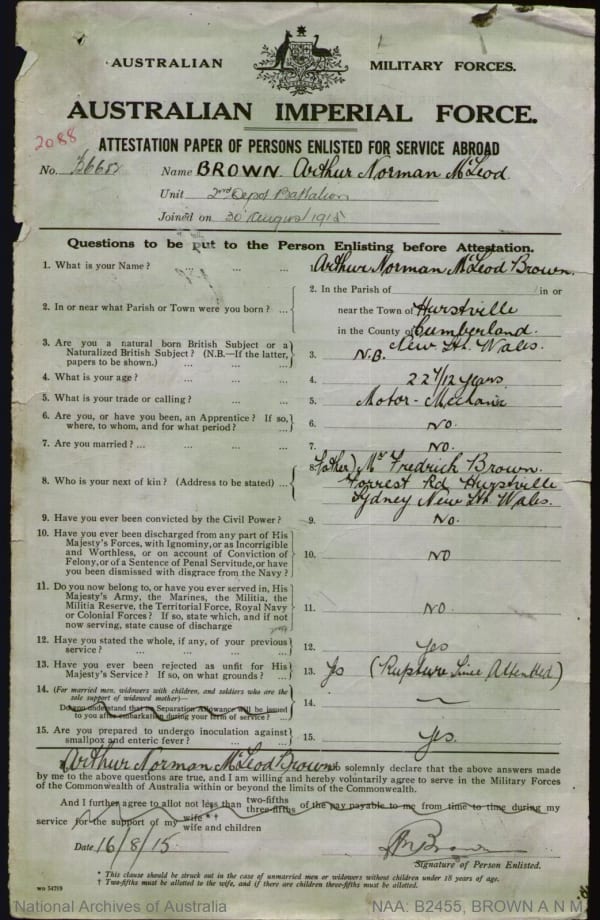 AUSTRALIAN MILITARY FORCES.
AUSTRALIAN IMPERIAL FORCE.
2088
ATTESTATION PAPER OF PERSONS ENLISTED FOR SERVICE ABROAD
No. Name BROWN. Arthur Norman McLeod.
Unit 2nd Depot Battalion
Joined on 30 August 1915
Questions to be put to the Person Enlisting before Attestation.
1. What is your Name? ... ... Arthur Norman McLeod Brown.
2. In or near what Parish or Town were you born? ...
2. In the Parish of in or
near the Town of Hurstville
in the County of Cumberland.
New Sth. Wales.
3. Are you a natural born British Subject or a
Naturalized British Subject? (N.B.—If the latter,
papers to be shown.) ... ...
3. N.B.
4. What is your age? ... ... ... 4. 22 /12 years
5. What is your trade or calling? ... ... 5. Motor-Mechanic
6. Are you, or have you been, an Apprentice? If so,
where, to whom, and for what period? ...
6. No.
7. Are you married? ... ... ... ... 7. No.
8. Who is your next of kin? (Address to be stated) ...
8. (Father) Mr Fredrich Brown.
Forrest Rd Hurstville
Sydney New Sth. Wales.
9. Have you ever been convicted by the Civil Power? 9. No.
10. Have you ever been discharged from any part of His
Majesty's Forces, with Ignominy, or as Incorrigible
and Worthless, or on account of Conviction of
Felony, or of a Sentence of Penal Servitude, or have
you been Dismissed with disgrace from the Navy?
10. NO
11. Do you now belong to, or have you ever served in, His
Majesty's Army, the Marines, the Militia, the
Militia Reserve, the Territorial Force, Royal Navy
or Colonial Forces? If so, state which, and if not
now serving, state cause of discharge
11. NO.
12. Have you stated the whole, if any, of your previous
service? ... ... ... ...
12. Yes
13. Have you ever been rejected as unfit for His
Majesty's Service? If so, on what grounds? ...
13. Yes (Rupture Since Attended)
14. (For married men, widowers with children, and soldiers who are the
sole support of widowed mother)—
Do you understand that no Separation Allowance will be issued
to you after embarkation during your term of service? ...
14. —
15. Are you prepared to undergo inoculation against
smallpox and enteric fever? ... ...
15. Yes.
I, Arthur Norman McLeod Brown do solemnly declare that the above answers made
by me to the above questions are true, and I am willing and hereby voluntarily agree to serve in the Military Forces
of the Commonwealth of Australia within or beyond the limits of the Commonwealth.
And I further agree to allot not less than two-fifths
three-fifths of the pay payable to me from time to time during my
service for the support of my wife *†
wife and children
Date 16/8/15. Brown
Signature of Person Enlisted.
* This clause should be struck out in the case of unmarried men or widowers without children under 18 years of age.
† Two-fifths must be allotted to the wife, and if there are children three-fifths must be allotted.
wo 54719
National Archives of Australia NAA: B2455, BROWN A N M